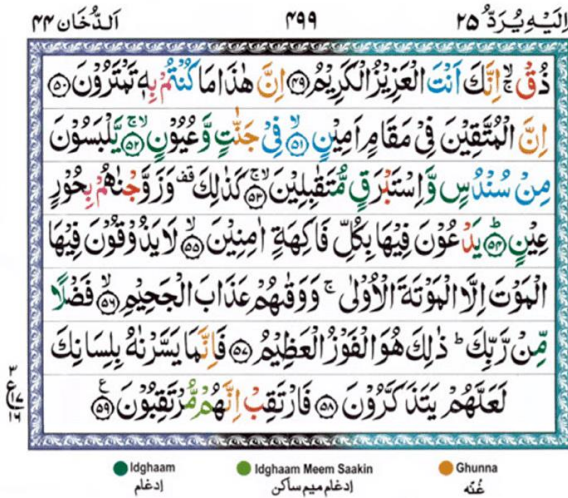 اِلَيْهِ يُرَدُّ ٢٥ ٤٩٩ اَلدُّخَان ٤٤
ذُقْ ۙۚ اِنَّكَ اَنْتَ الْعَزِيْزُ الْكَرِيْمُ ﴿٤٩﴾ اِنَّ هٰذَا مَا كُنْتُمْ بِهٖ تَمْتَرُوْنَ ﴿٥٠﴾
اِنَّ الْمُتَّقِيْنَ فِيْ مَقَامٍ اَمِيْنٍ ۙ﴿٥١﴾ فِيْ جَنّٰتٍ وَّعُيُوْنٍ ۙۚ﴿٥٢﴾ يَّلْبَسُوْنَ
مِنْ سُنْدُسٍ وَّاِسْتَبْرَقٍ مُّتَقٰبِلِيْنَ ۙۚ﴿٥٣﴾ كَذٰلِكَ ۫ وَزَوَّجْنٰهُمْ بِحُوْرٍ
عِيْنٍ ؕ﴿٥٤﴾ يَدْعُوْنَ فِيْهَا بِكُلِّ فَاكِهَةٍ اٰمِنِيْنَ ۙ﴿٥٥﴾ لَا يَذُوْقُوْنَ فِيْهَا
الْمَوْتَ اِلَّا الْمَوْتَةَ الْاُوْلٰى ۚ وَوَقٰىهُمْ عَذَابَ الْجَحِيْمِ ۙ﴿٥٦﴾ فَضْلًا
مِّنْ رَّبِّكَ ؕ ذٰلِكَ هُوَ الْفَوْزُ الْعَظِيْمُ ﴿٥٧﴾ فَاِنَّمَا يَسَّرْنٰهُ بِلِسَانِكَ
لَعَلَّهُمْ يَتَذَكَّرُوْنَ ﴿٥٨﴾ فَارْتَقِبْ اِنَّهُمْ مُّرْتَقِبُوْنَ ﴿٥٩﴾ ع
Idghaam Idghaam Meem Saakin Ghunna
إدغام إدغام ميم ساكن غُنّه